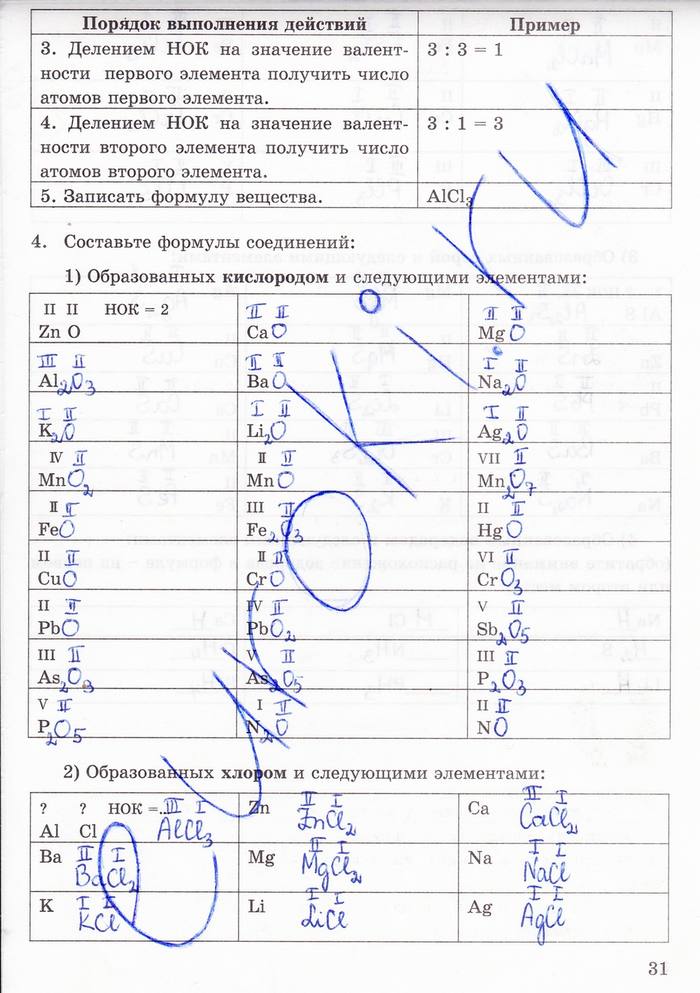 Порядок выполнения действий Пример
3. Делением НОК на значение валент- 3 : 3 = 1
ности первого элемента получить число
атомов первого элемента.
4. Делением НОК на значение валент- 3 : 1 = 3
ности второго элемента получить число
атомов второго элемента.
5. Записать формулу вещества. AlCl₃
4. Составьте формулы соединений:
1) Образованных кислородом и следующими элементами:
II II НОК = 2 II II II II
Zn O CaO MgO
III II II II I II
Al₂O₃ BaO Na₂O
I II I II I II
K₂O Li₂O Ag₂O
IV II II II VII II
MnO₂ MnO Mn₂O₇
II II III II II II
FeO Fe₂O₃ HgO
II II II II VI II
CuO CrO CrO₃
II II IV II V II
PbO PbO₂ Sb₂O₅
III II V II III II
As₂O₃ As₂O₅ P₂O₃
V II I II II II
P₂O₅ N₂O NO
2) Образованных хлором и следующими элементами:
? ? НОК =..III I Zn II I Ca II I
Al Cl AlCl₃ ZnCl₂ CaCl₂
Ba II I Mg II I Na I I
BaCl₂ MgCl₂ NaCl
K I I Li I I Ag I I
KCl LiCl AgCl
31